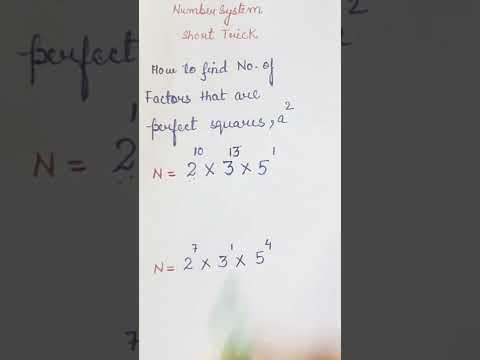 Number System
Short Trick
How to find No. of
Factors that are
perfect squares, a²
N = 2¹⁰ × 3¹³ × 5¹
N = 2⁷ × 3¹ × 5⁴